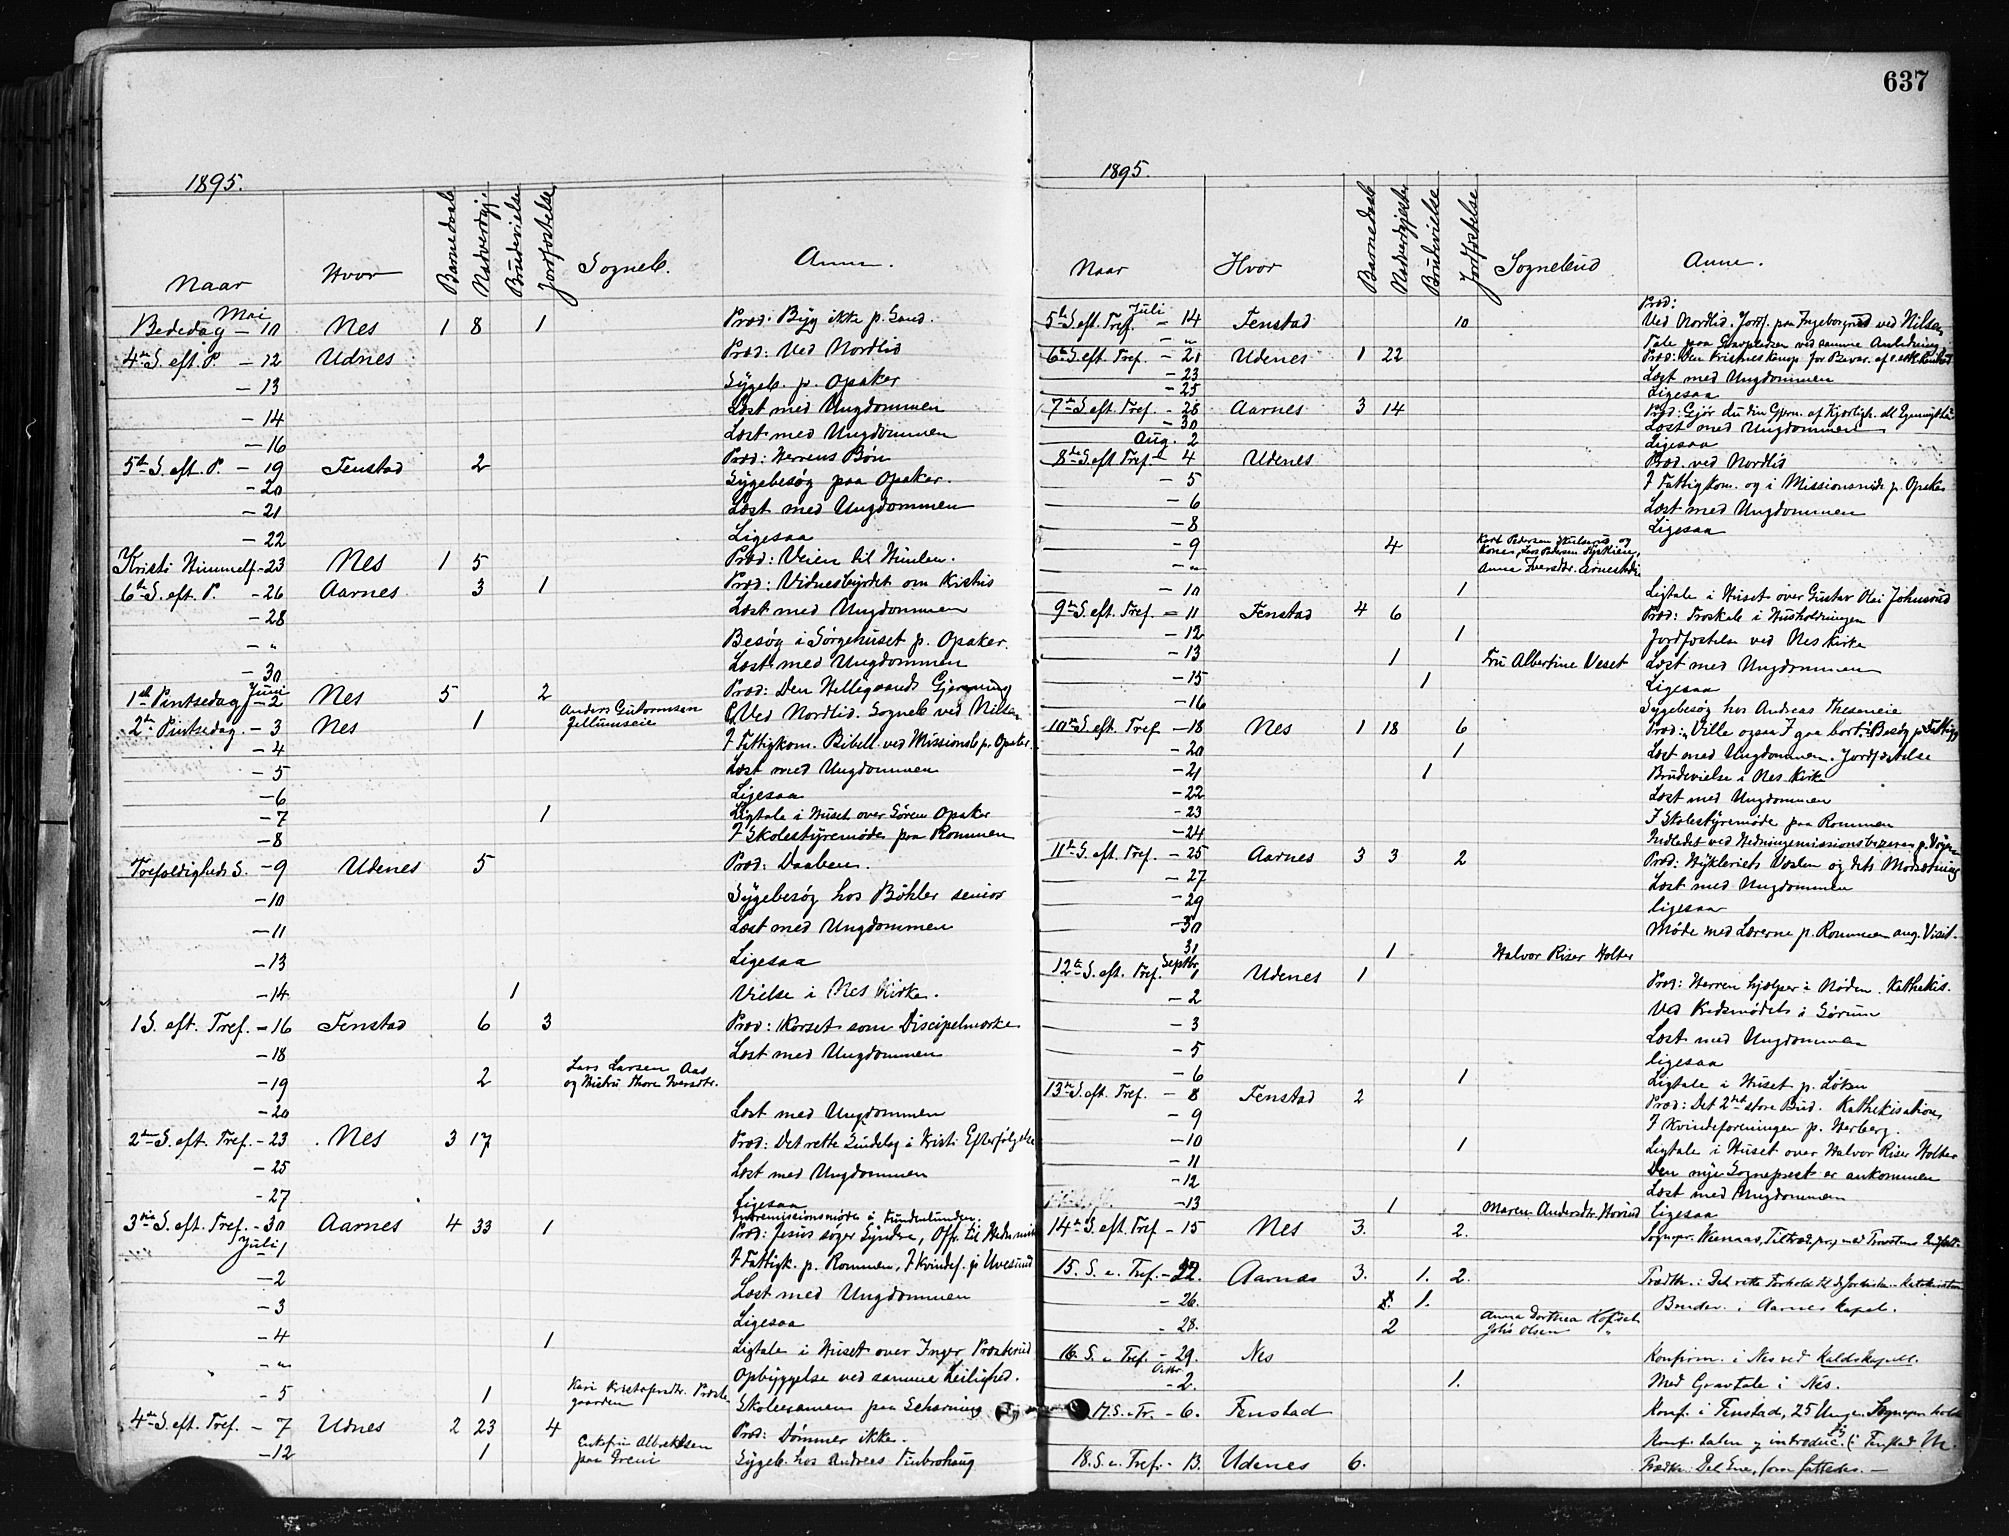 637
1895.
Naar Hvor Barnedaab Nadverdgj. Brudevielse Jordfæstelse Sogneb. Anm.
Mai
Bededag - 10 Nes 1 8 1 Præd: Byg ikke p. Sand.
4de S. eft. P. - 12 Udnes Præd: Ved Nordlid
- 13 Sygeb. p. Opaker
- 14 Læst med Ungdommen
- 16 Læst med Ungdommen
5te S. eft. P. - 19 Fenstad 2 Præd: Herrens Bøn
- 20 Sygebesøg paa Opaker.
- 21 Læst med Ungdommen
- 22 Ligesaa
Kristi Himmelf. - 23 Nes 1 5 Præd: Veien til Himlen.
6te S. eft. P. - 26 Aarnes 3 1 Præd: Vidnesbyrdet om Kristus
- 28 Læst med Ungdommen
- " Besøg i Sørgehuset p. Opaker.
- 30 Læst med Ungdommen
Juni
1ste Pintsedag - 2 Nes 5 2 Præd: Den Helligaands Gjerning
2den Pintsedag - 3 Nes 1 Anders Guttormsen Jellumseie Ved Nordlid. Sogneb. ved Nilsen
- 4 I Fattigkom. Bibell. ved Missionsb. p. Opaker
- 5 Læst med Ungdommen
- 6 Ligesaa
- 7 1 Ligtale i Huset over Søren Opaker
- 8 I Skolestyremøde paa Rommen
Trefoldigheds S. - 9 Udenes 5 Præd: Daaben.
- 10 Sygebesøg hos Bøhler senior
- 11 Læst med Ungdommen
- 13 Ligesaa
- 14 1 Vielse i Nes Kirke.
1 S. eft. Tref. - 16 Fenstad 6 3 Præd: Korset som Discipelmærke
- 18 Læst med Ungdommen
- 19 2 Lars Larsen Aas og Hustru Thore Iversdtr.
- 20 Læst med Ungdommen
2den S. eft. Tref. - 23 Nes 3 17 Præd: Det rette Sindelag i Kristi Efterfølgelse
- 25 Læst med Ungdommen
- 27 Ligesaa
Indremissionsmøde i Lundenlunden.
3die S. eft. Tref. - 30 Aarnes 4 33 1 Præd: Jesus søger Syndre, Offr. til Hedn. miss.
Juli 1 I Fattigk. p. Rommen, I Kvindef. p. Uvesund
- 2 Læst med Ungdommen
- 3 Ligesaa
- 4 1 Ligtale i Huset over Inger Præsterud
- " Opbyggelse ved samme Leilighed.
- 5 1 Kari Kristofersdtr. Præstegaarden Skoleexamen paa Scharning
4de S. eft. Tref. - 7 Udnes 2 23 4 Præd: Dømmer ikke.
- 12 1 Albrektsen paa Greni Sygeb. hos Andreas Finbrohaug
1895.
Naar Hvor Barnedaab Nadverdgjester Brudevielse Jordfæstelse Sognebud Anm.
Juli Præd:
5te S. eft. Tref. - 14 Fenstad 10 Ved Nordlid. Jordf. paa Ingeborgrud ved Nilsen
- " Tale paa Gravpladsen ved samme Anledning
6te S. eft. Tref. - 21 Udenes 1 22 Præd: Den Kristnes Kamp for Bevar. af
- 23 Læst med Ungdommen
- 25 Ligesaa
7de S. eft. Tref. - 28 Aarnes 3 14 Præd: Gjør du din Gjern. af Kjærligh. ell.
- 30 Læst med Ungdommen
Aug. 2 Ligesaa
8de S. eft. Tref. - 4 Udenes Præd. ved Nordlid
- 5 I Fattigkom. og i Missionsmøde p. Opaker
- 6 Læst med Ungdommen
- 8 Ligesaa
- 9 4 Karl Pedersen og Kone, Lars Pedersen
- " Anna Iversdtr. Arnestadeie
- 10 1 Ligtale i Huset over Gustav Olai Johnsrud
9de S. eft. Tref. - 11 Fenstad 4 6 Præd: Troskab i Husholdningen
- 12 1 Jordfæstelse ved Nes Kirke
- 13 1 Fru Albertine Veset Læst med Ungdommen
- 15 1 Ligesaa
- 16 Sygebesøg hos Andreas Theseneie
10de S. eft. Tref. - 18 Nes 1 18 6 Præd: Ville ogsaa I gaa bort. Besøg p. Fattigg.
- 20 1 Læst med Ungdommen. Jordfæstelse
- 21 1 Brudevielse i Nes Kirke
- 22 Læst med Ungdommen
- 23 I Skolestyremøde paa Rommen
- 24 Indledet ved Hedningemissionsbazaren p.
11te S. eft. Tref. - 25 Aarnes 3 3 2 Præd: Hykleriets Væsen og dets Modsætning
- 27 Læst med Ungdommen
- 29 ligesaa
- 30 Møde med Lærerne p. Rommen ang. Visit.
31 1 Halvor Riser Holter
12te S. eft. Tref. Septbr. 1 Udenes 1 Præd: Herren hjælper i Nøden. Kathekis.
- 2 Ved Kredsmødet i Sørum
- 3 Læst med Ungdommen
- 5 ligesaa
- 6 1 Ligtale i Huset p. Løken
13de S. eft. Tref. - 8 Fenstad 2 Præd: Det 2det store Bud. Kathekisation
- 9 I Kvindeforeningen p. Herberg.
- 10 1 Ligtale i Huset over Halvor Riser Holter
- 11 Den nye Sogneprest er ankommen
- 12 Læst med Ungdommen
- 13 1 Maren Andersdtr. Horind ligesaa
14de S. eft. Tref. - 15 Nes 3. 2. Sognepr. Tiltrædpr. med Provstens
15. S. e. Tref. - 22. Aarnes 3. 1. 2. Prædk.: Det rette Forhold til
- 26. 1. Brudev. i Aarnes kapel.
- 28. 2 Anna Dorthea Joh's Olsen "
16. S. e. Tref. - 29. Nes Konfirm. i Nes ved
Octbr - 2. 1. Med Gravtale i Nes.
17. S. e. Tr. - 6. Fenstad Konf. i Fenstad, 25 Unge. Sognepr. holdt
Konf. talen
18. S. e. Tref. - 13. Udenes 6. Prædk: Det Ene, som fattedes. -